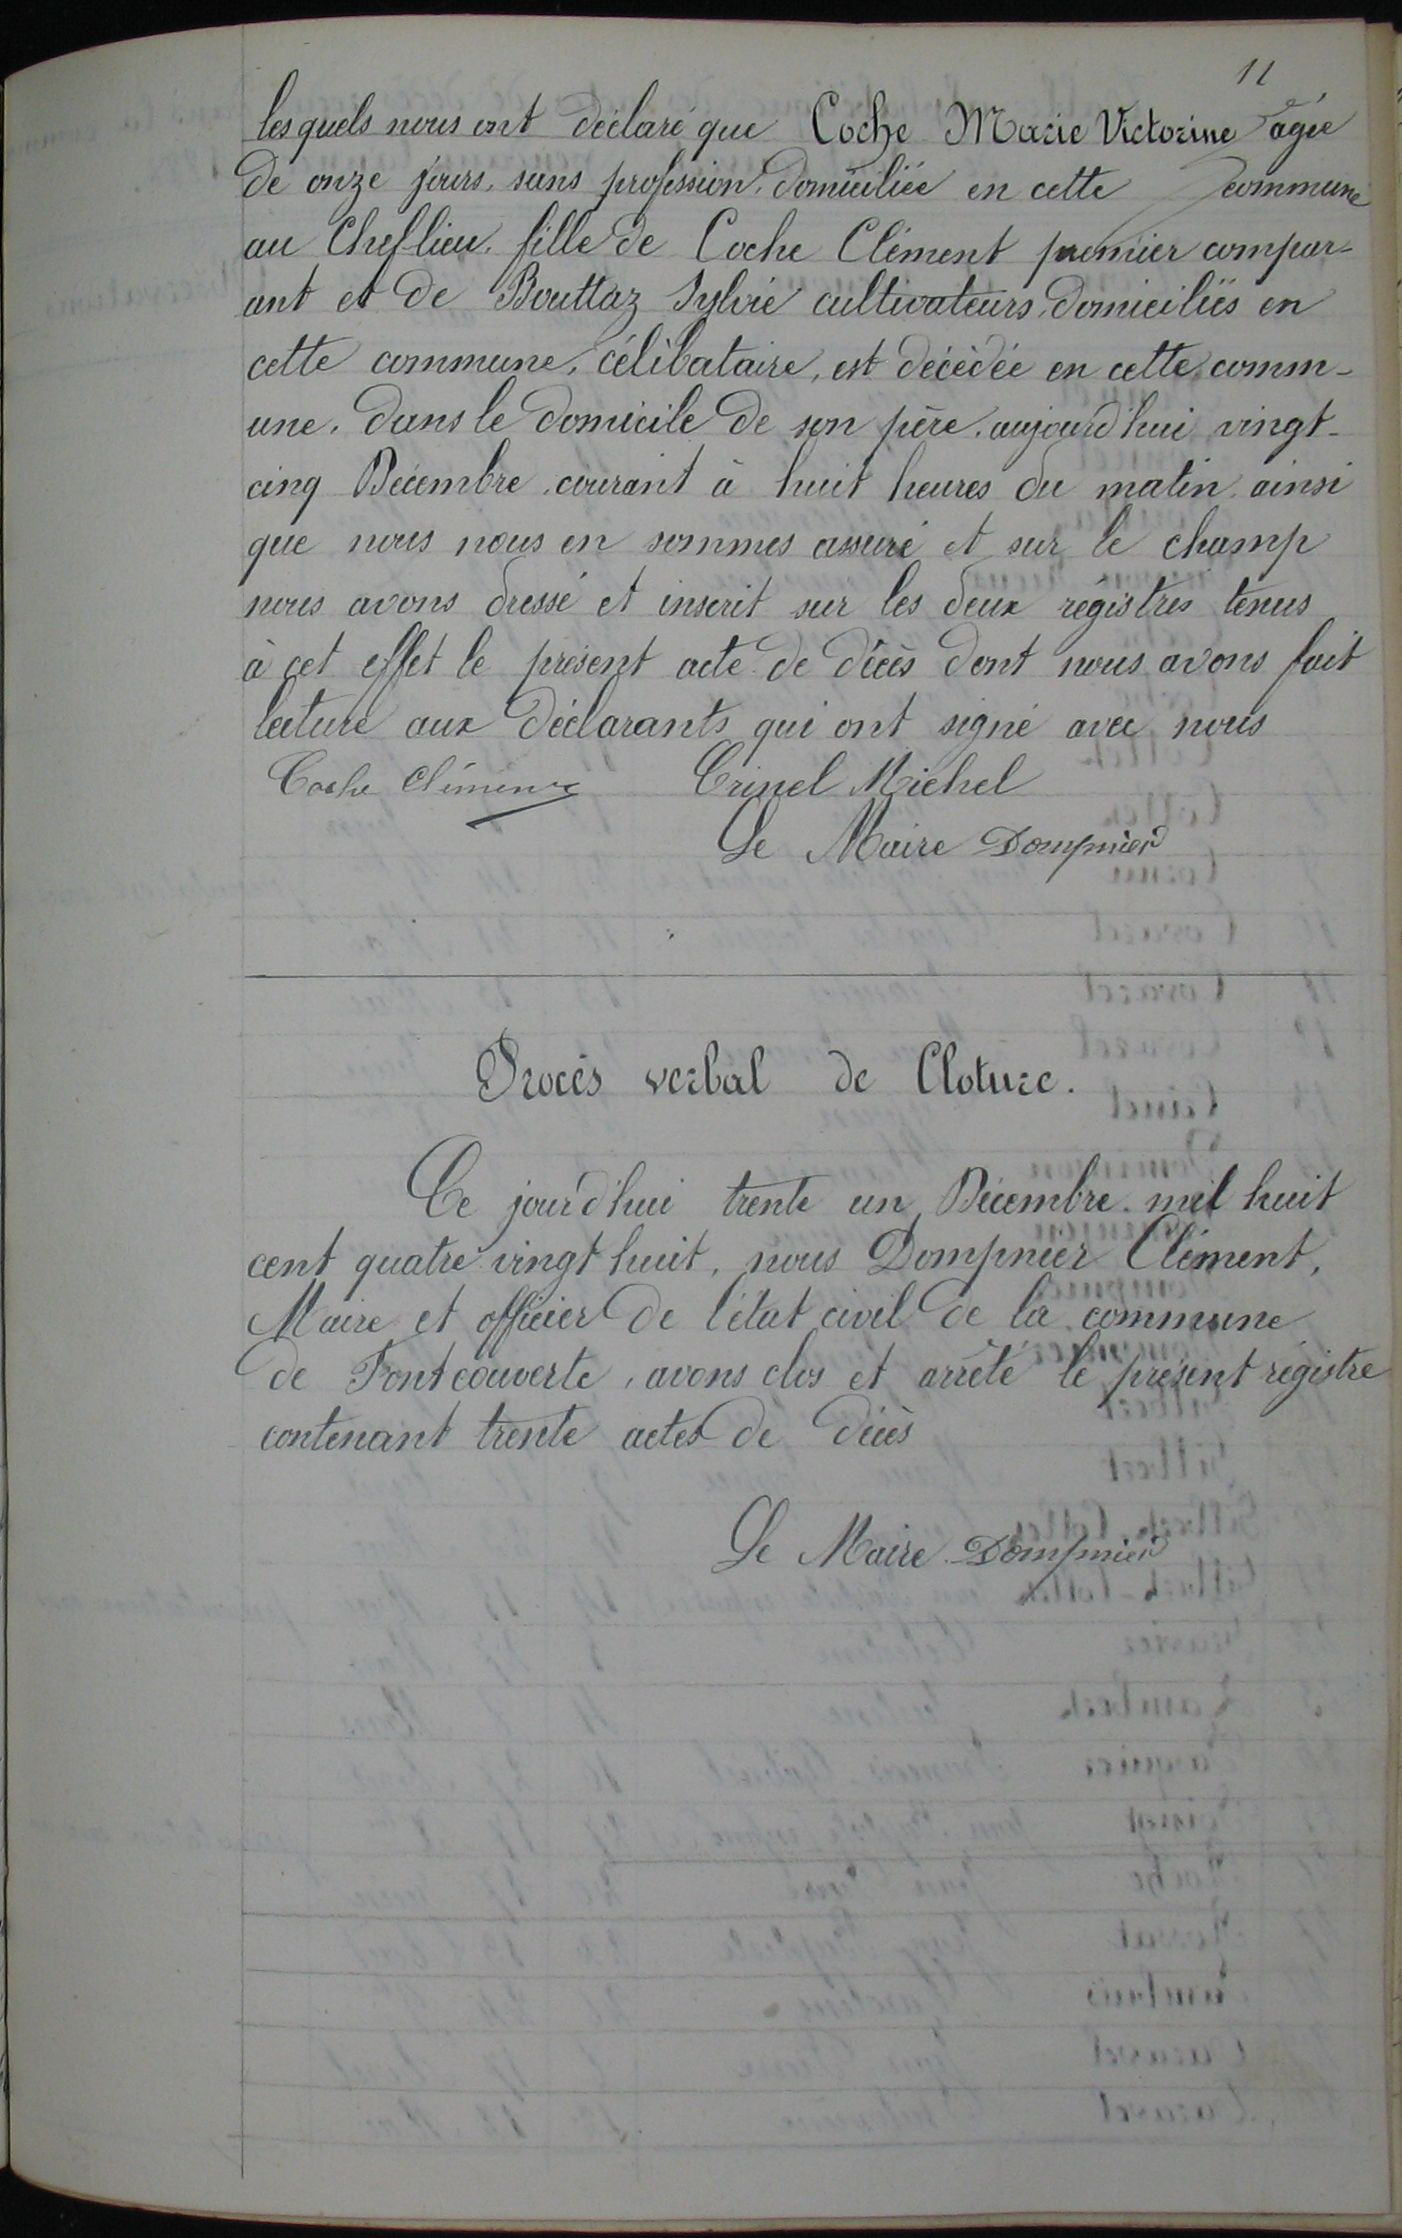 11
lesquels nous ont déclaré que Coche Marie Victorine agée
de onze jours, sans profession, domiciliée en cette commune
au Cheflieu, fille de Coche Clément premier compar-
ant et de Bouttaz Sylvie cultivateurs, domiciliés en
cette commune, célibataire, est décédée en cette comm-
une, dans le domicile de son père, aujourd'hui vingt-
cinq Décembre courant à huit heures du matin, ainsi
que nous nous en sommes assuré et sur le champ
nous avons dressé et inscrit sur les deux régistres tenus
à cet effet le présent acte de décès dont nous avons fait
lecture aux déclarants qui ont signé avec nous
Coche Clément Crinel Michel
Le Maire Dompnier
Procés verbal de Cloture.
Ce jourd'hui trente un Décembre mil huit
cent quatre vingt huit, nous Dompnier Clément,
Maire et officier de l'état civil de la commune
de Fontcouverte, avons clos et arrêté le présent régistre
contenant trente actes de décès
Le Maire Dompnier